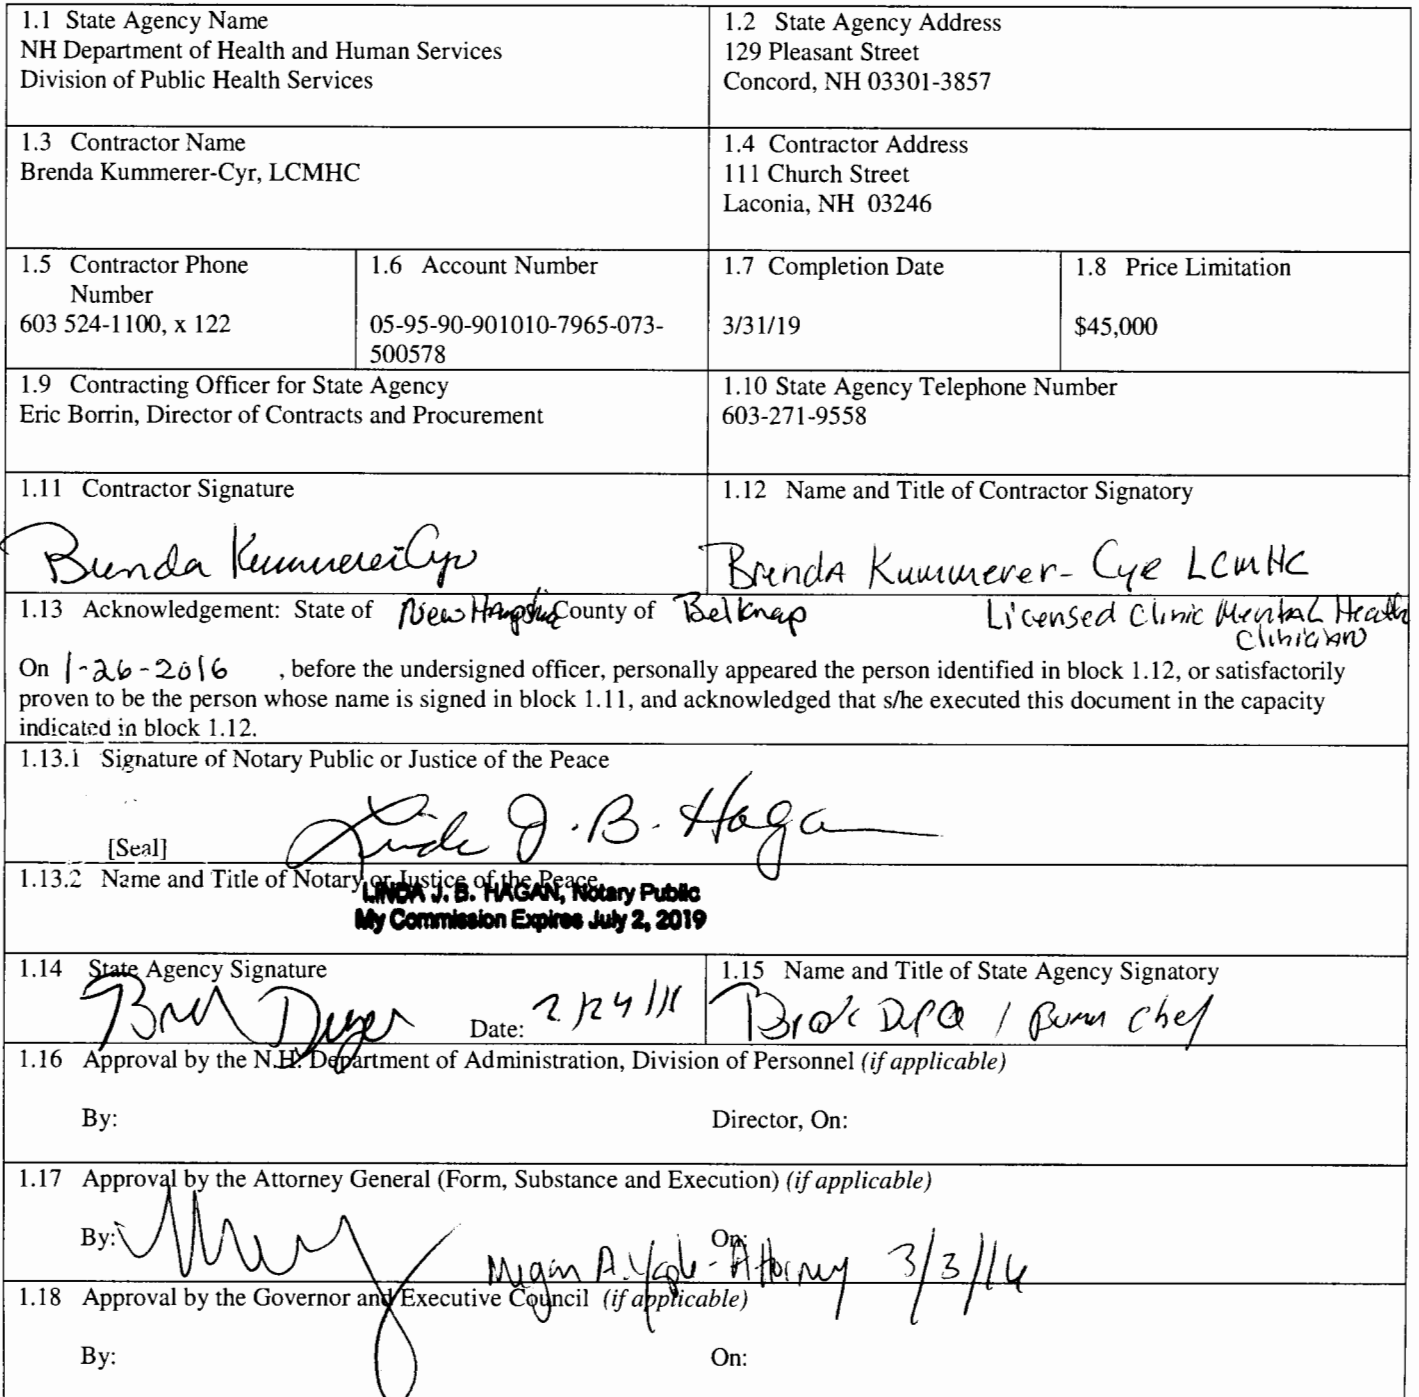 1.1 State Agency Name
NH Department of Health and Human Services
Division of Public Health Services
1.2 State Agency Address
129 Pleasant Street
Concord, NH 03301-3857
1.3 Contractor Name
Brenda Kummerer-Cyr, LCMHC
1.4 Contractor Address
111 Church Street
Laconia, NH 03246
1.5 Contractor Phone
Number
603 524-1100, x 122
1.6 Account Number
05-95-90-901010-7965-073-
500578
1.7 Completion Date
3/31/19
1.8 Price Limitation
$45,000
1.9 Contracting Officer for State Agency
Eric Borrin, Director of Contracts and Procurement
1.10 State Agency Telephone Number
603-271-9558
1.11 Contractor Signature
Brenda Kummerer-Cyr
1.12 Name and Title of Contractor Signatory
Brenda Kummerer-Cyr LCMHC
Licensed Clinic Mental Health
Clinician
1.13 Acknowledgement: State of New Hampshire County of Belknap
On 1-26-2016 , before the undersigned officer, personally appeared the person identified in block 1.12, or satisfactorily
proven to be the person whose name is signed in block 1.11, and acknowledged that s/he executed this document in the capacity
indicated in block 1.12.
1.13.1 Signature of Notary Public or Justice of the Peace
Linda J. B. Hagan
[Seal]
1.13.2 Name and Title of Notary or Justice of the Peace
LINDA J. B. HAGAN, Notary Public
My Commission Expires July 2, 2019
1.14 State Agency Signature
Date: 2/24/16
1.15 Name and Title of State Agency Signatory
1.16 Approval by the N.H. Department of Administration, Division of Personnel (if applicable)
By:
Director, On:
1.17 Approval by the Attorney General (Form, Substance and Execution) (if applicable)
By:
On:
Megan A. Yaple - Attorney 3/3/16
1.18 Approval by the Governor and Executive Council (if applicable)
By:
On: